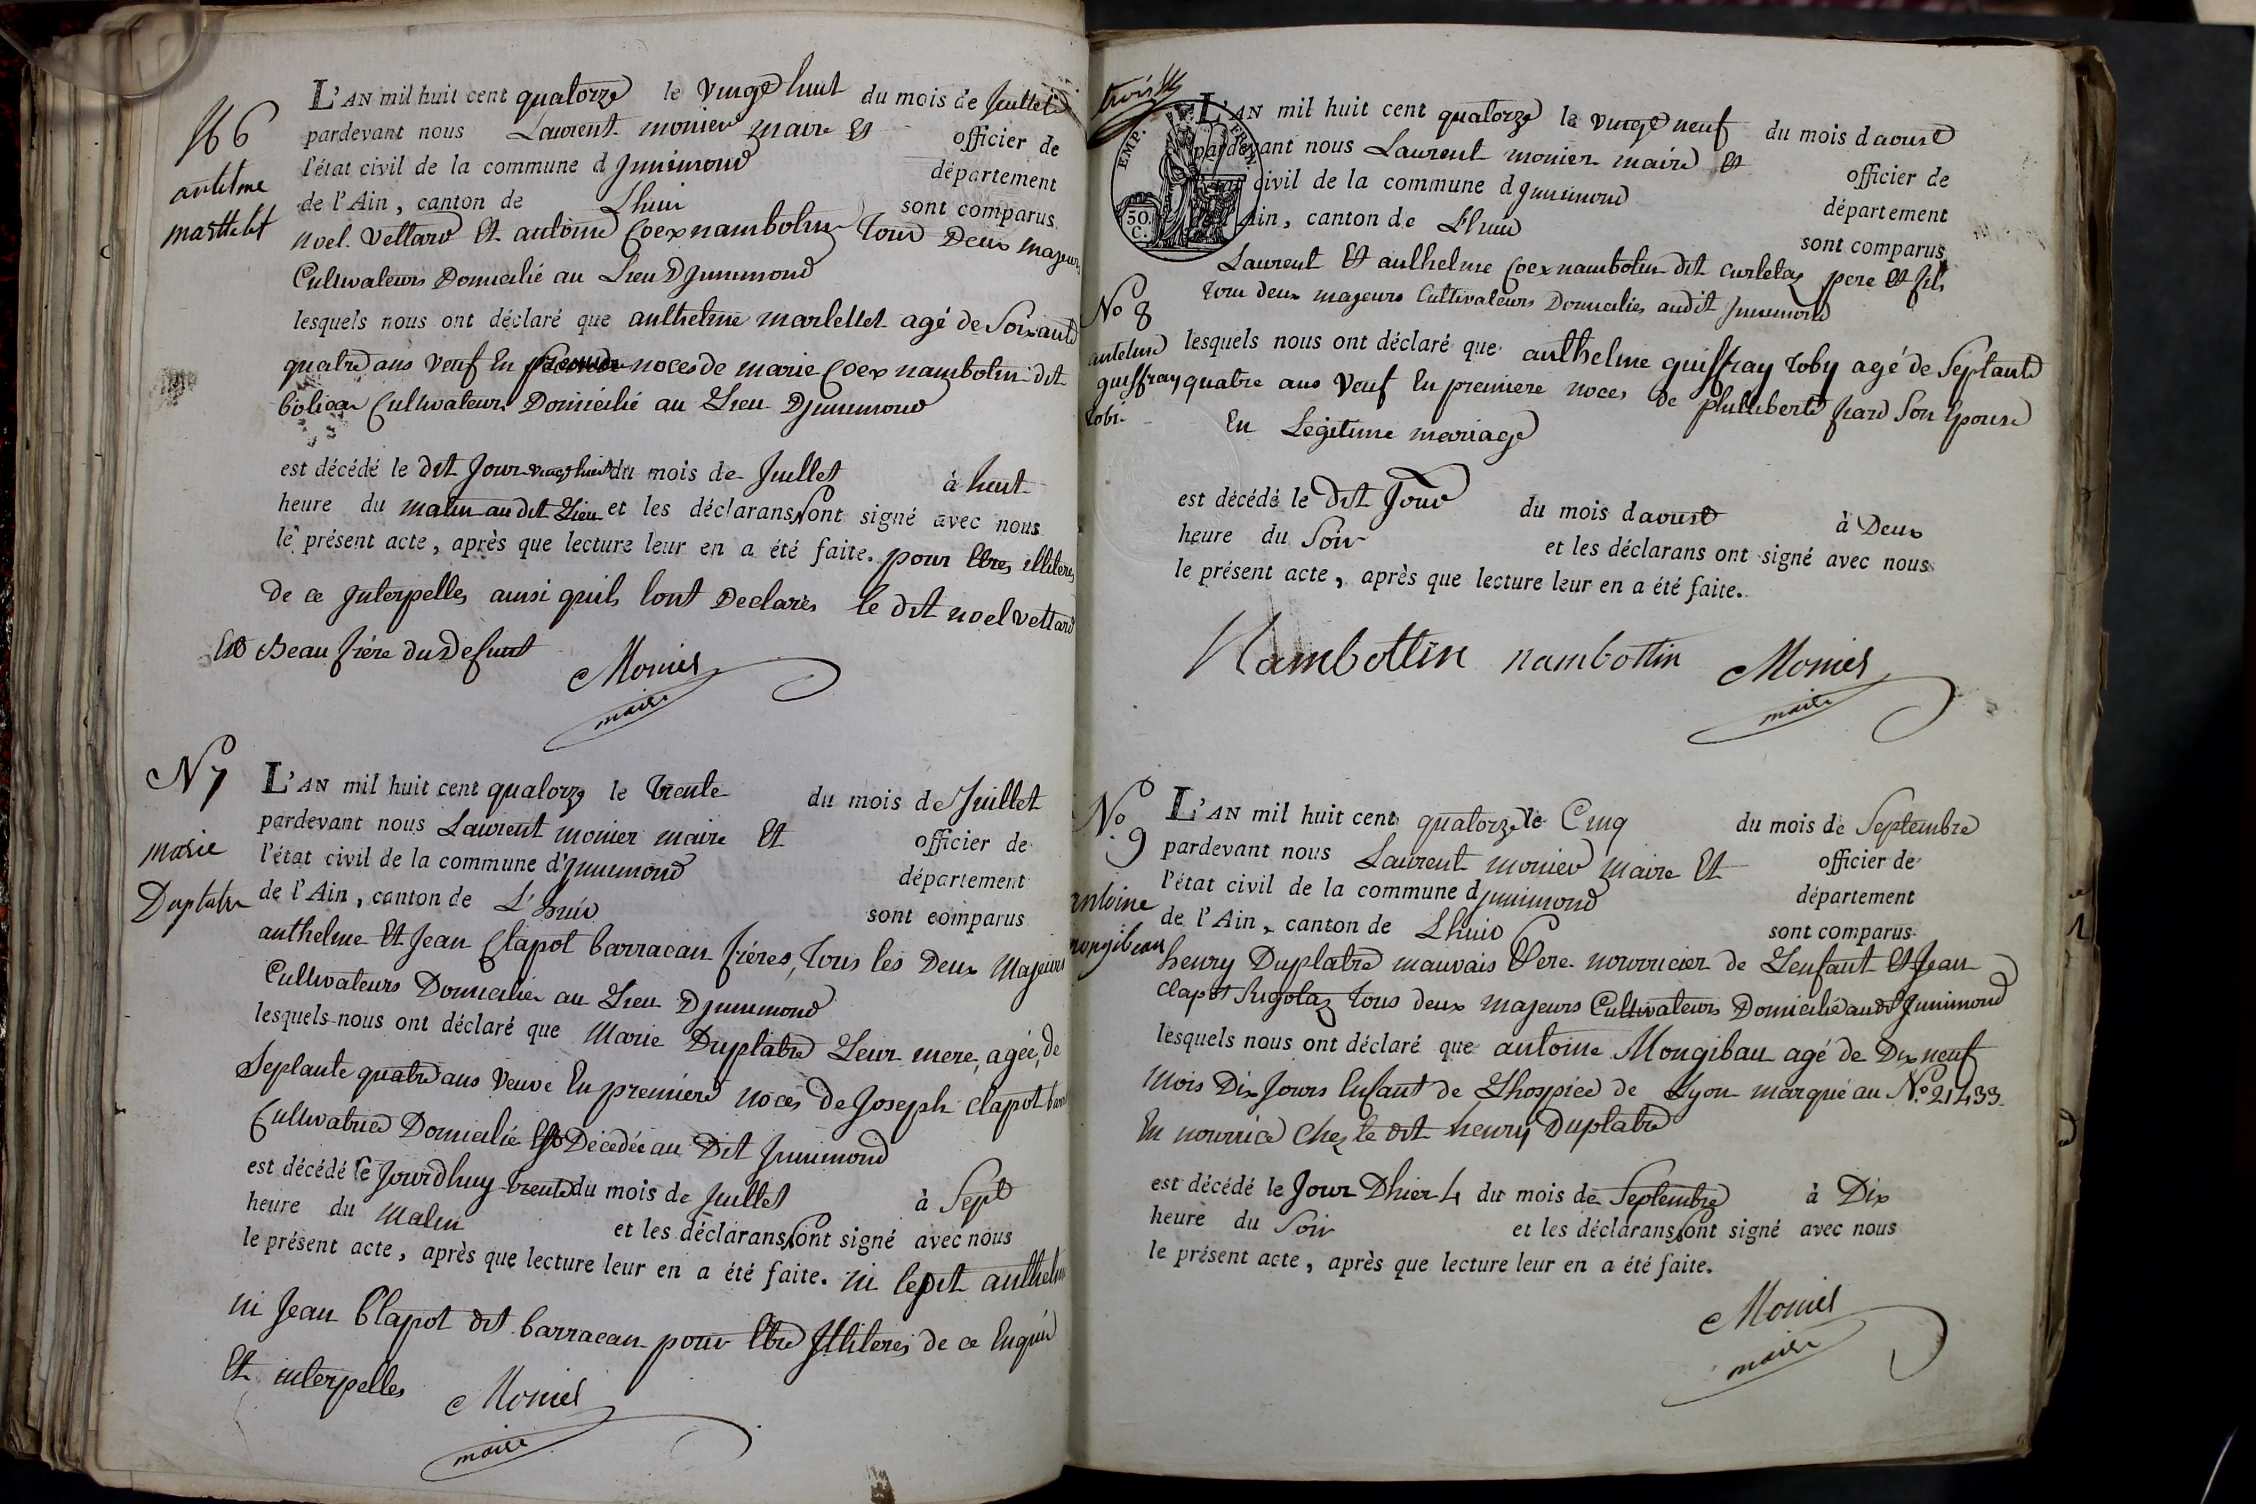 N 6
antelme
martelet
L'AN mil huit cent quatorze le vingt huit du mois de Juillet
pardevant nous Laurent monier maire Et officier de
l'état civil de la commune d Jnnimond département
de l'Ain, canton de Lhuis sont comparus
noel Vettard Et antoine Coex nambotin Tous Deux majeurs
Cultivateurs Domicilié au Lieu DJnnimond
lesquels nous ont déclaré que anthelme martellet agé de Soixante
quatre ans Veuf En noces de marie Coex nambotin dit
Cultivateur Domicilié au Lieu DJnnimond
est décédé le dit Jour vingt huit du mois de Juillet à huit
heure du matin au dit Lieu et les déclarans sont signé avec nous
le présent acte, après que lecture leur en a été faite. pour Etres illiteres
de ce Jnterpelles ainsi quils lont Declarés le dit noel vettard
Est Beau frère du Defunt
Monier
maire
N 7
marie
Duplatre
L'AN mil huit cent quatorze le trente du mois de Juillet
pardevant nous Laurent monier maire Et officier de
l'état civil de la commune d'Jnnimond département
de l'Ain, canton de L'huis sont comparus
anthelme Et Jean Clapot barracan frères, Tous les Deux Majeurs
Cultivateurs Domicilié au Lieu DJnnimond
lesquels nous ont déclaré que Marie Duplatre Leur mere, agée, de
Septante quatre ans Veuve En premiere noces de Joseph Clapot
Cultivatrice Domicilié Est Décedée au Dit Jnnimond
est décédé le Jourdhuy trente du mois de Juillet à Sept
heure du Matin et les déclarans sont signé avec nous
le présent acte, après que lecture leur en a été faite. ni ledit anthelme
ni Jean Clapot dit barracan pour Etre Jlliteres de ce Enquis
Et interpelles
Monier
maire
EMP. FRAN.
50. C.
L'AN mil huit cent quatorze le vingt neuf du mois daoust
pardevant nous Laurent monier maire Et officier de
état civil de la commune d Jnnimond département
Ain, canton de Lhuis sont comparus
Laurent Et anthelme Coex nambotin dit curletaz pere Et fils
Tous deux majeurs Cultivateurs Domicilies audit Jnnimond
No 8
antelme
guiffray
tobi
lesquels nous ont déclaré que anthelme guiffray toby agé de Septante
quatre ans Veuf En premiere noces de phillberte Son Epouse
En Légitime mariage
est décédé le dit Jour du mois daoust à Deux
heure du Soir et les déclarans ont signé avec nous
le présent acte, après que lecture leur en a été faite.
Nambottin nambottin Monier
maire
No 9
antoine
mongibeau
L'AN mil huit cent quatorze le Cinq du mois de Septembre
pardevant nous Laurent monier maire Et officier de
l'état civil de la commune dJnnimond département
de l'Ain, canton de Lhuis sont comparus
henry Duplatre mauvais Pere nourricier de Lenfant Et Jean
Clapot Rigolaz Tous deux majeurs Cultivateurs Domicilié audt Jnnimond
lesquels nous ont déclaré que antoine Mongibau agé de Dix neuf
Mois Dix Jours Enfant de Lhospice de Lyon marqué au No 21433
En nourrice chez le dit henry Duplatre
est décédé le Jour Dhier 4 du mois de Septembre à Dix
heure du Soir et les déclarans sont signé avec nous
le présent acte, après que lecture leur en a été faite.
Monier
maire